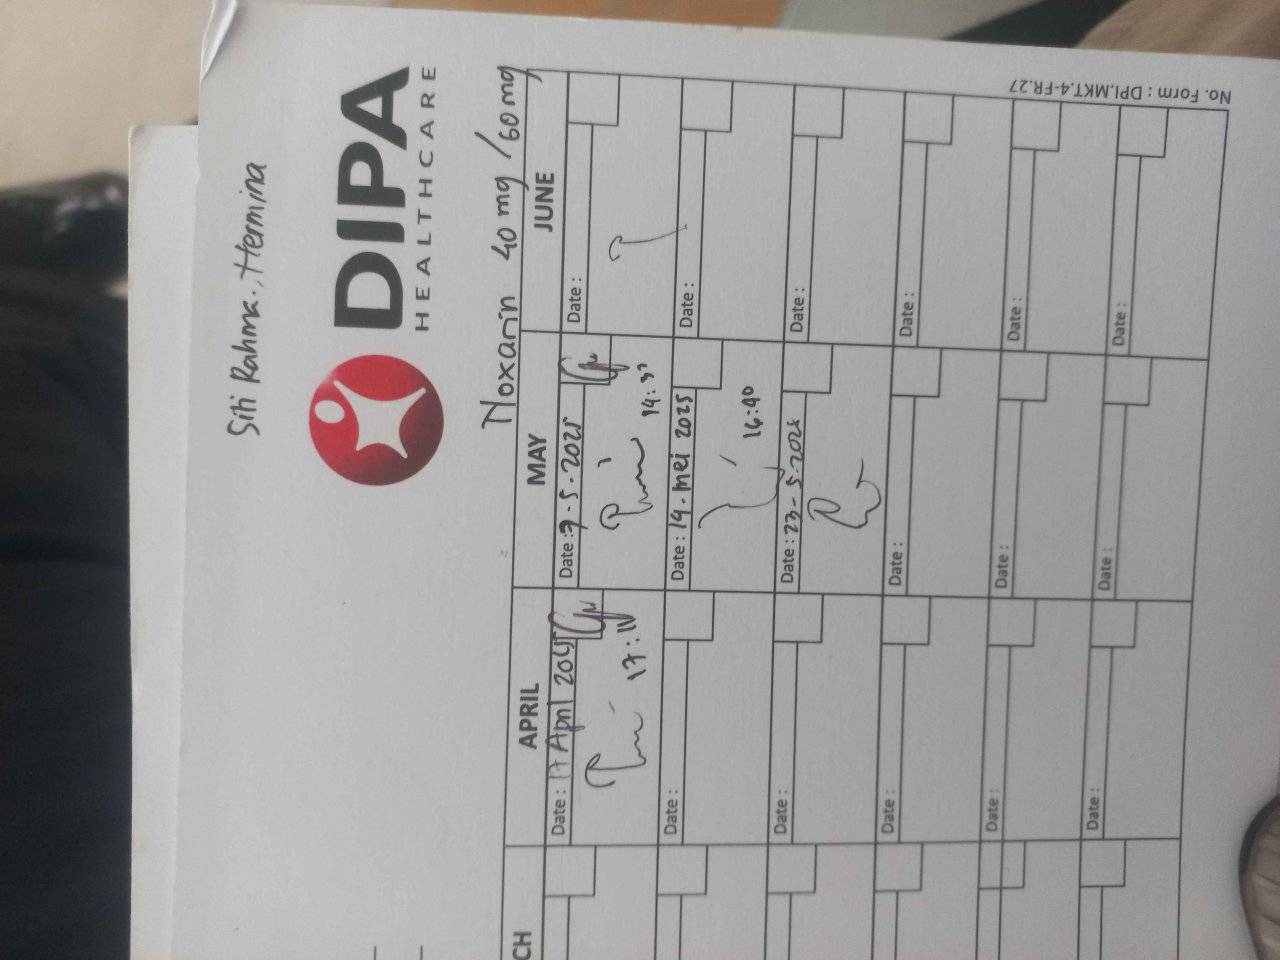 Siti Rahma., Hermina
DIPA
HEALTHCARE
Noxarin 40 mg / 60 mg
CH
APRIL
MAY
JUNE
Date : 17 April 2025
17:11
Date : 7-5-2025
14:37
Date :
Date :
Date : 14. mei 2025
16:40
Date :
Date :
Date : 23-5-2025
Date :
Date :
Date :
Date :
Date :
Date :
Date :
Date :
Date :
Date :
No. Form : DPI.MKT.4-FR.27